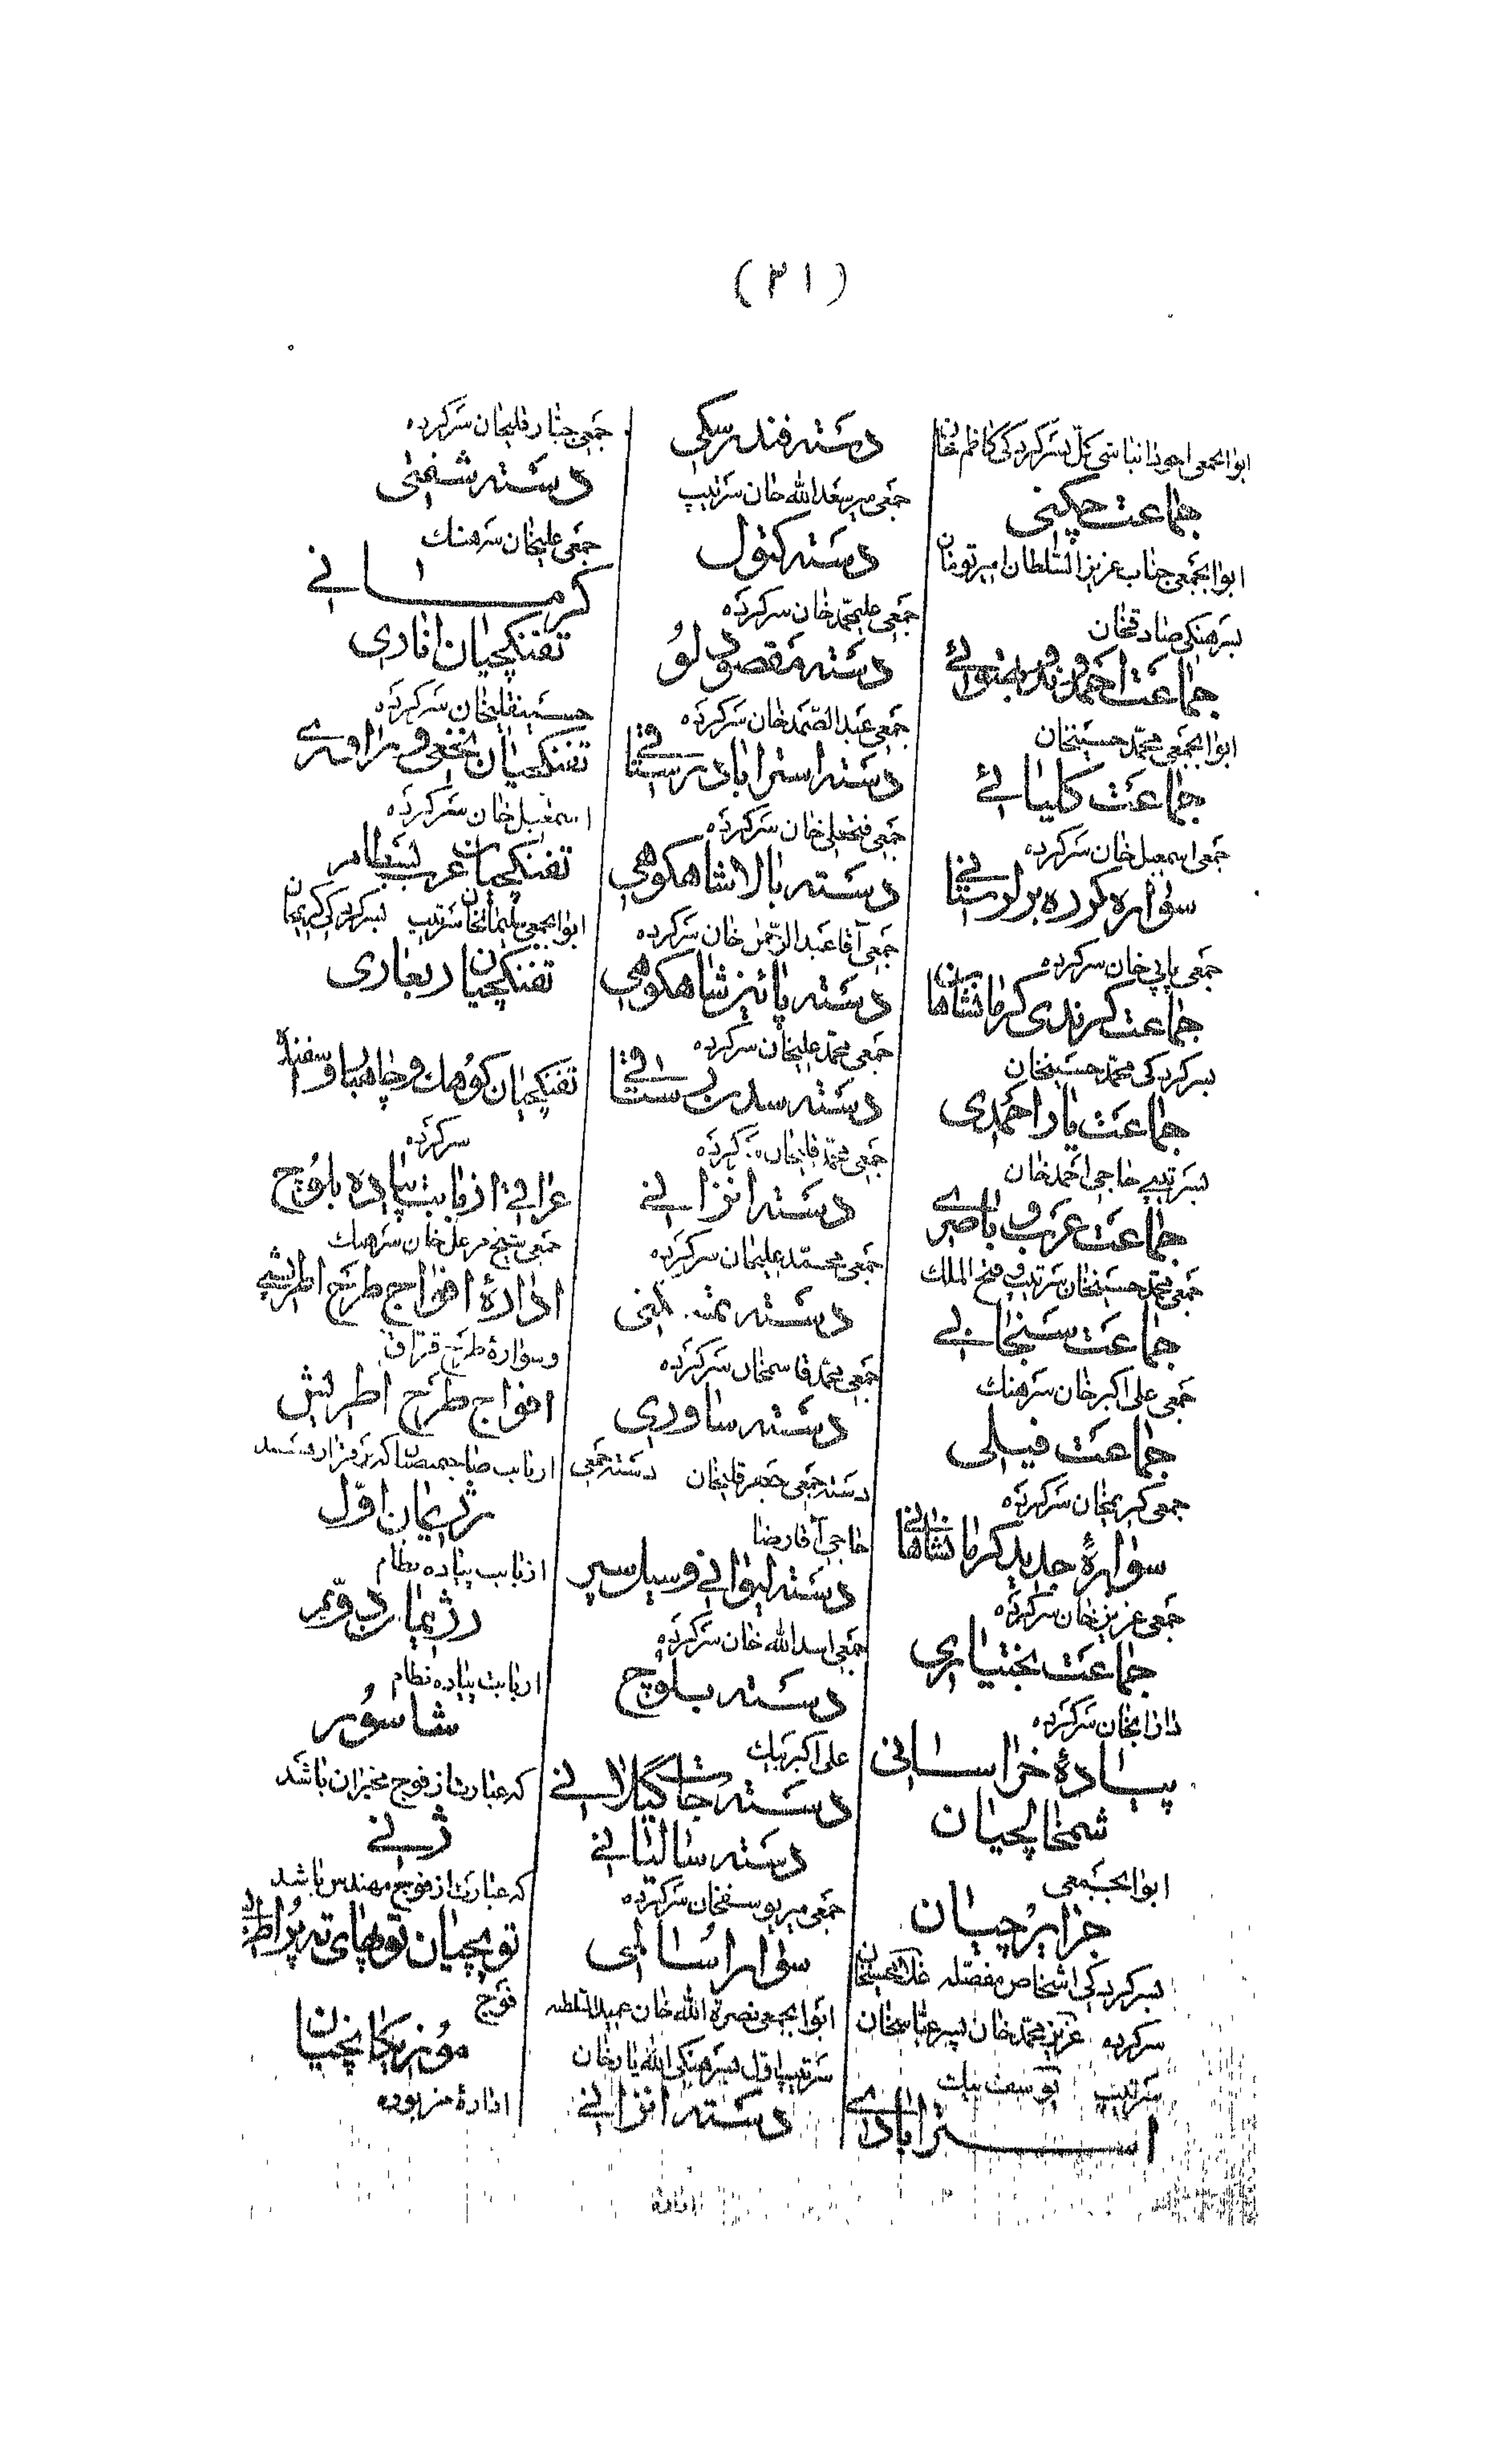 (٣١)
ابوابجمعی آجودانباشی کل بسرکردگی کاظم خان
جماعت چکینی
ابوابجمعی جناب عزیز السلطان امیرتومان
بسرهنگی صادقخان
جماعت احمدوند و بهتوئی
ابوابجمعی محمد حسینخان
جماعت کلیائی
جمعی اسمعیل خان سرکرده
سواره کرد و لرستانی
جمعی پاپی خان سرکرده
جماعت کرندی کرمانشاهان
بسرکردگی محمد حسینخان
جماعت یاراحمدی
بسرتیپی حاجی احمد خان
جماعت عرب و باصری
جمعی محمد حسینخان سرتیپ و فتح الملک
جماعت سنجابی
جمعی علی اکبر خان سرهنگ
جماعت فیلی
جمعی کریمخان سرکرده
سوارۀ جدید کرمانشاهانی
جمعی عزیز خان سرکرده
جماعت بختیاری
دارابخان سرکرده
پیادۀ خراسانی
شمخالچیان
ابوابجمعی
جزایرچیان
بسرکردگی اشخاص مفصله غلامحسینخان
سرکرده عزیز محمد خان پسر عباسخان
سرتیپ یوسف بیک
استرابادی
دسته فندرسکی
جمعی میر سعدالله خان سرتیپ
دسته کتول
جمعی علیمحمد خان سرکرده
دسته مقصودلو
جمعی عبدالصمد خان سرکرده
دسته استراباد رستاقی
جمعی فتحعلی خان سرکرده
دسته بالا شاهکوهی
جمعی آقا عبدالرحمن خان سرکرده
دسته پائیز شاهکوهی
جمعی محمد علیخان سرکرده
دسته سدن رستاقی
جمعی محمد قلیخان سرکرده
دسته انزانی
جمعی محمد علیخان سرکرده
دسته
جمعی محمد قاسمخان سرکرده
دسته ساوری
دسته جمعی جعفر قلیخان دسته جمعی
حاجی آقا رضا
دسته لیوانی و سیاسر
جمعی اسدالله خان سرکرده
دسته بلوچ
علی اکبر بیک
دسته جات گیلانی
دسته سالیانی
جمعی میر یوسفخان سرکرده
سوار اسالمی
ابوابجمعی نصرة الله خان عمید السلطنه
سرتیپ اول بسرهنگی الله یار خان
دسته انزانی
جمعی جبار قلیخان سرکرده
دسته شفتی
جمعی علیخان سرهنک
کرمانی
تفنکچیان اناری
حسینقلیخان سرکرده
تفنکچیان نخعی و راوری
اسمعیل خان سرکرده
تفنکچیان عرب بسطام
ابوابجمعی سلیمانخان سرتیپ بسرکردگی کریمخان
تفنکچیان ربعاری
تفنکچیان کوهک و
سرکرده
عراقی از بابت پیاده بلوچ
جمعی سرهنک
ادارۀ افواج طرح اطریشی
و سوارۀ طرح قزاق
افواج طرح اطریش
ارباب صاحبمنصبان که برقرار هستند
رژیمان اول
از بابت پیاده نظام
رژیمان دویم
از بابت پیاده نظام
شاسور
که عبارت از فوج مخبران باشد
ژنی
که عبارت از فوج مهندس باشد
توپچیان توپهای ته پر اطریشی
فوج
موزیکانچیان
ادارۀ مزبوره
ادارۀ